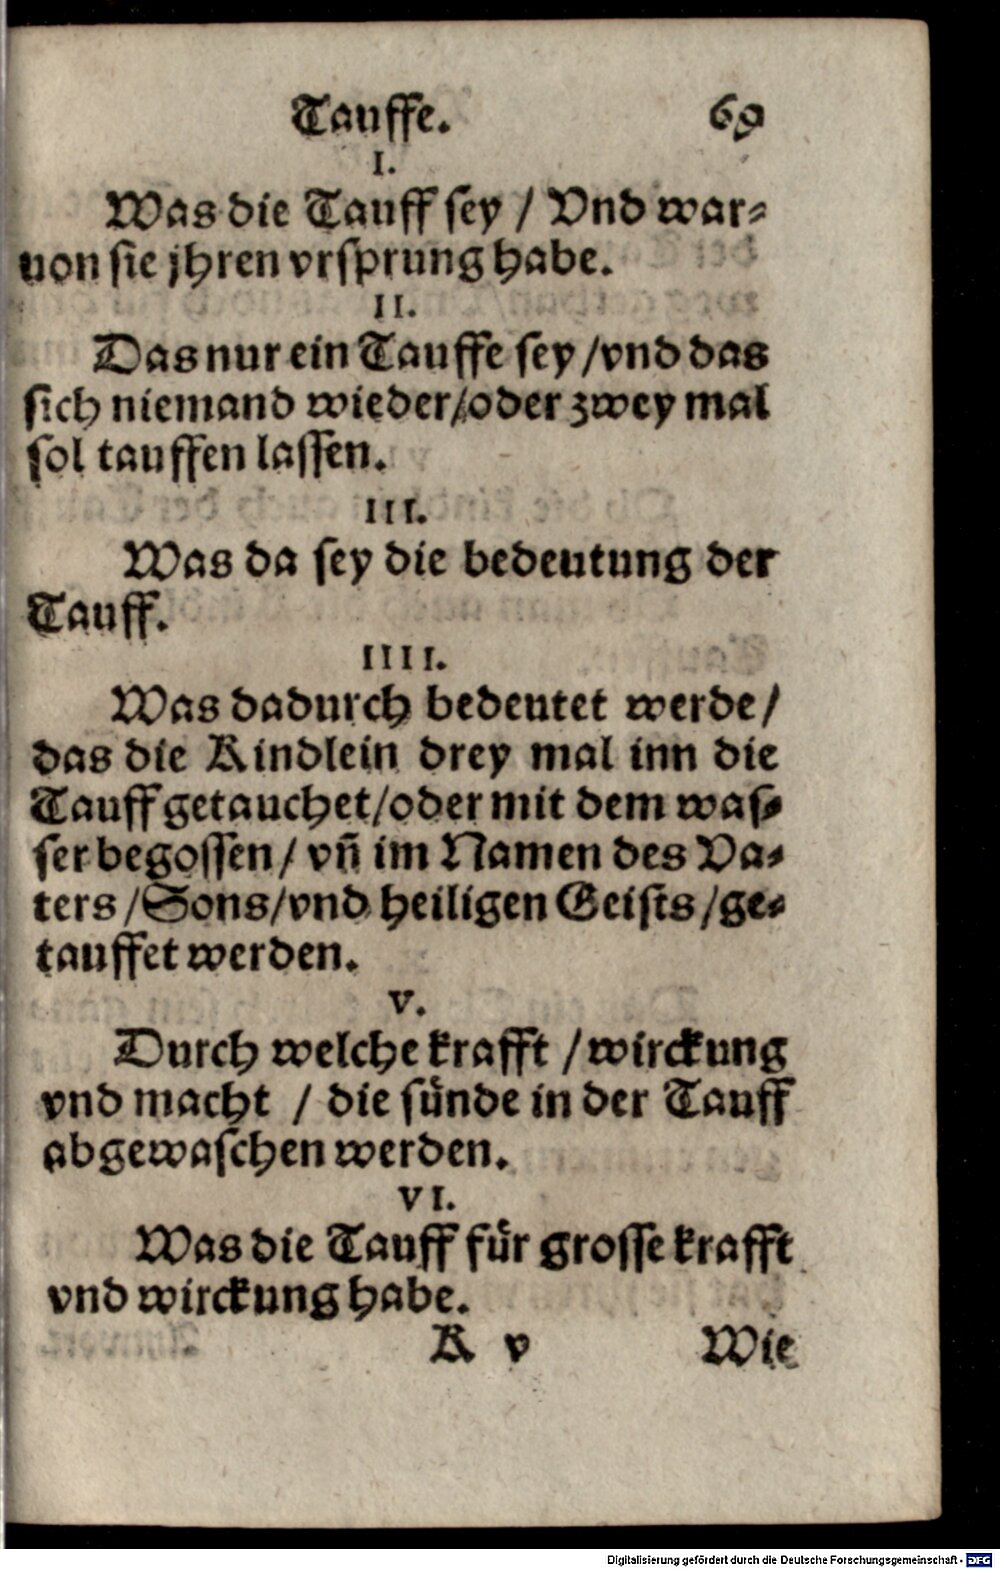 Tauffe. 69
I.
Was die Tauff sey / Vnd war⸗
uon sie jhren vrsprung habe.
II.
Das nur ein Tauffe sey / vnd das
sich niemand wieder / oder zwey mal
sol tauffen lassen.
III.
Was da sey die bedeutung der
Tauff.
IIII.
Was dadurch bedeutet werde /
das die Kindlein drey mal inn die
Tauff getauchet / oder mit dem was⸗
ser begossen / vñ im Namen des Va⸗
ters / Sons / vnd heiligen Geists / ge⸗
tauffet werden.
V.
Durch welche krafft / wirckung
vnd macht / die sünde in der Tauff
abgewaschen werden.
VI.
Was die Tauff für grosse krafft
vnd wirckung habe.
K v Wie
Digitalisierung gefördert durch die Deutsche Forschungsgemeinschaft - DFG